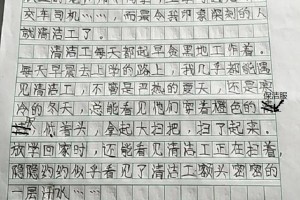 交车司机……，而最令我印象深刻的人
就清洁工了。
清洁工每天都起早贪黑地工作着。
每天早晨去上学的路上，我几乎都能遇
见清洁工，不管是严热的夏天，还是寒
冷的冬天，总能看见他们穿着橙色的
保洁服
，低着头，拿起大扫把，扫了起来。
放学回家时，还能看见清洁工正在扫着，
隐隐约约似乎看见了清洁工额头密密的
一层汗水……